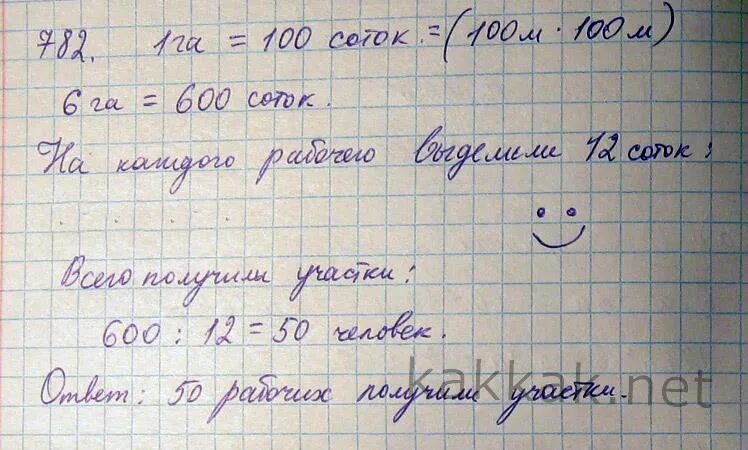 782. 1га = 100 соток. = (100м · 100м)
6 га = 600 соток.
На каждого рабочего выделили 12 соток:
Всего получили участки:
600 : 12 = 50 человек.
Ответ: 50 рабочих получили участки.
kakkak.net